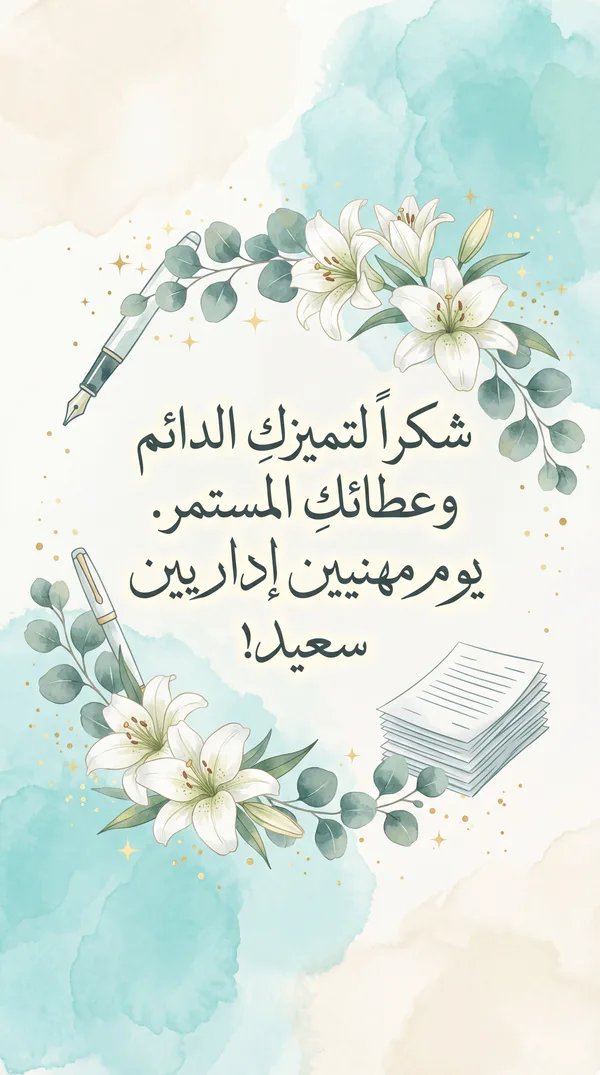 شكراً لتميزكِ الدائم
وعطائكِ المستمر.
يوم مهنيين إداريين
سعيد!